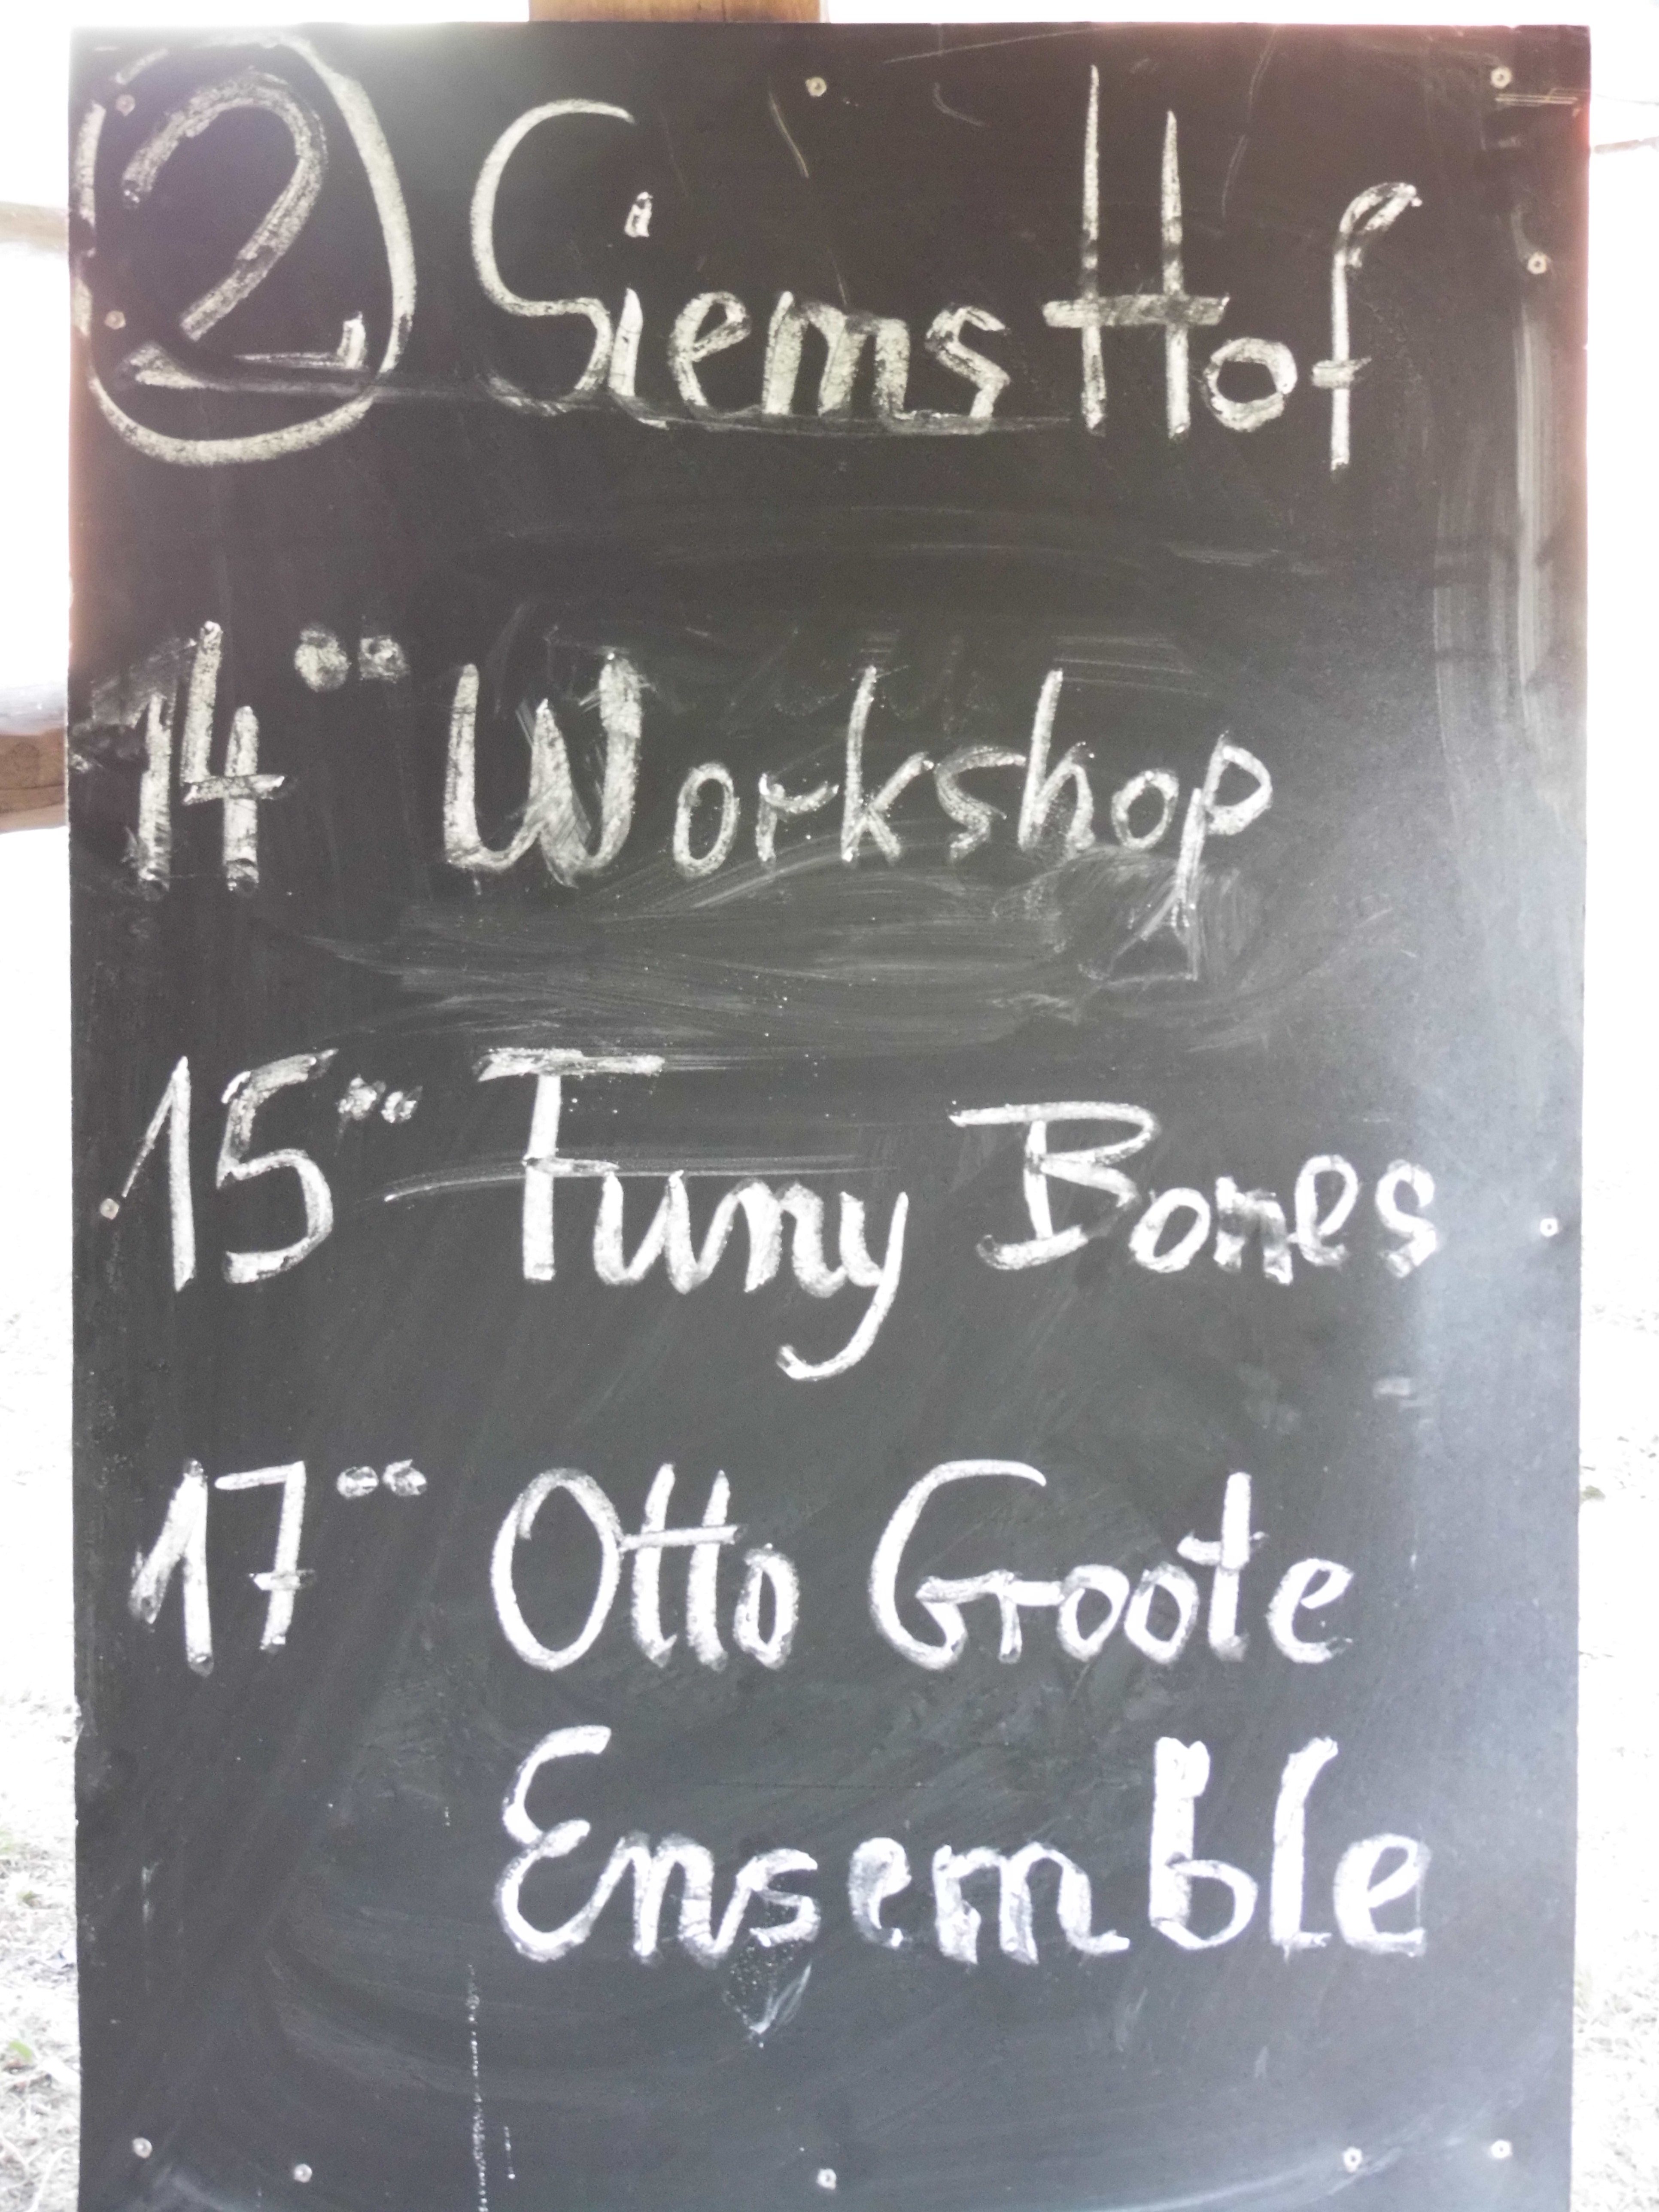 2 Siems Hof
14°° Workshop
15°° Funny Bones
17°° Otto Groote
Ensemble